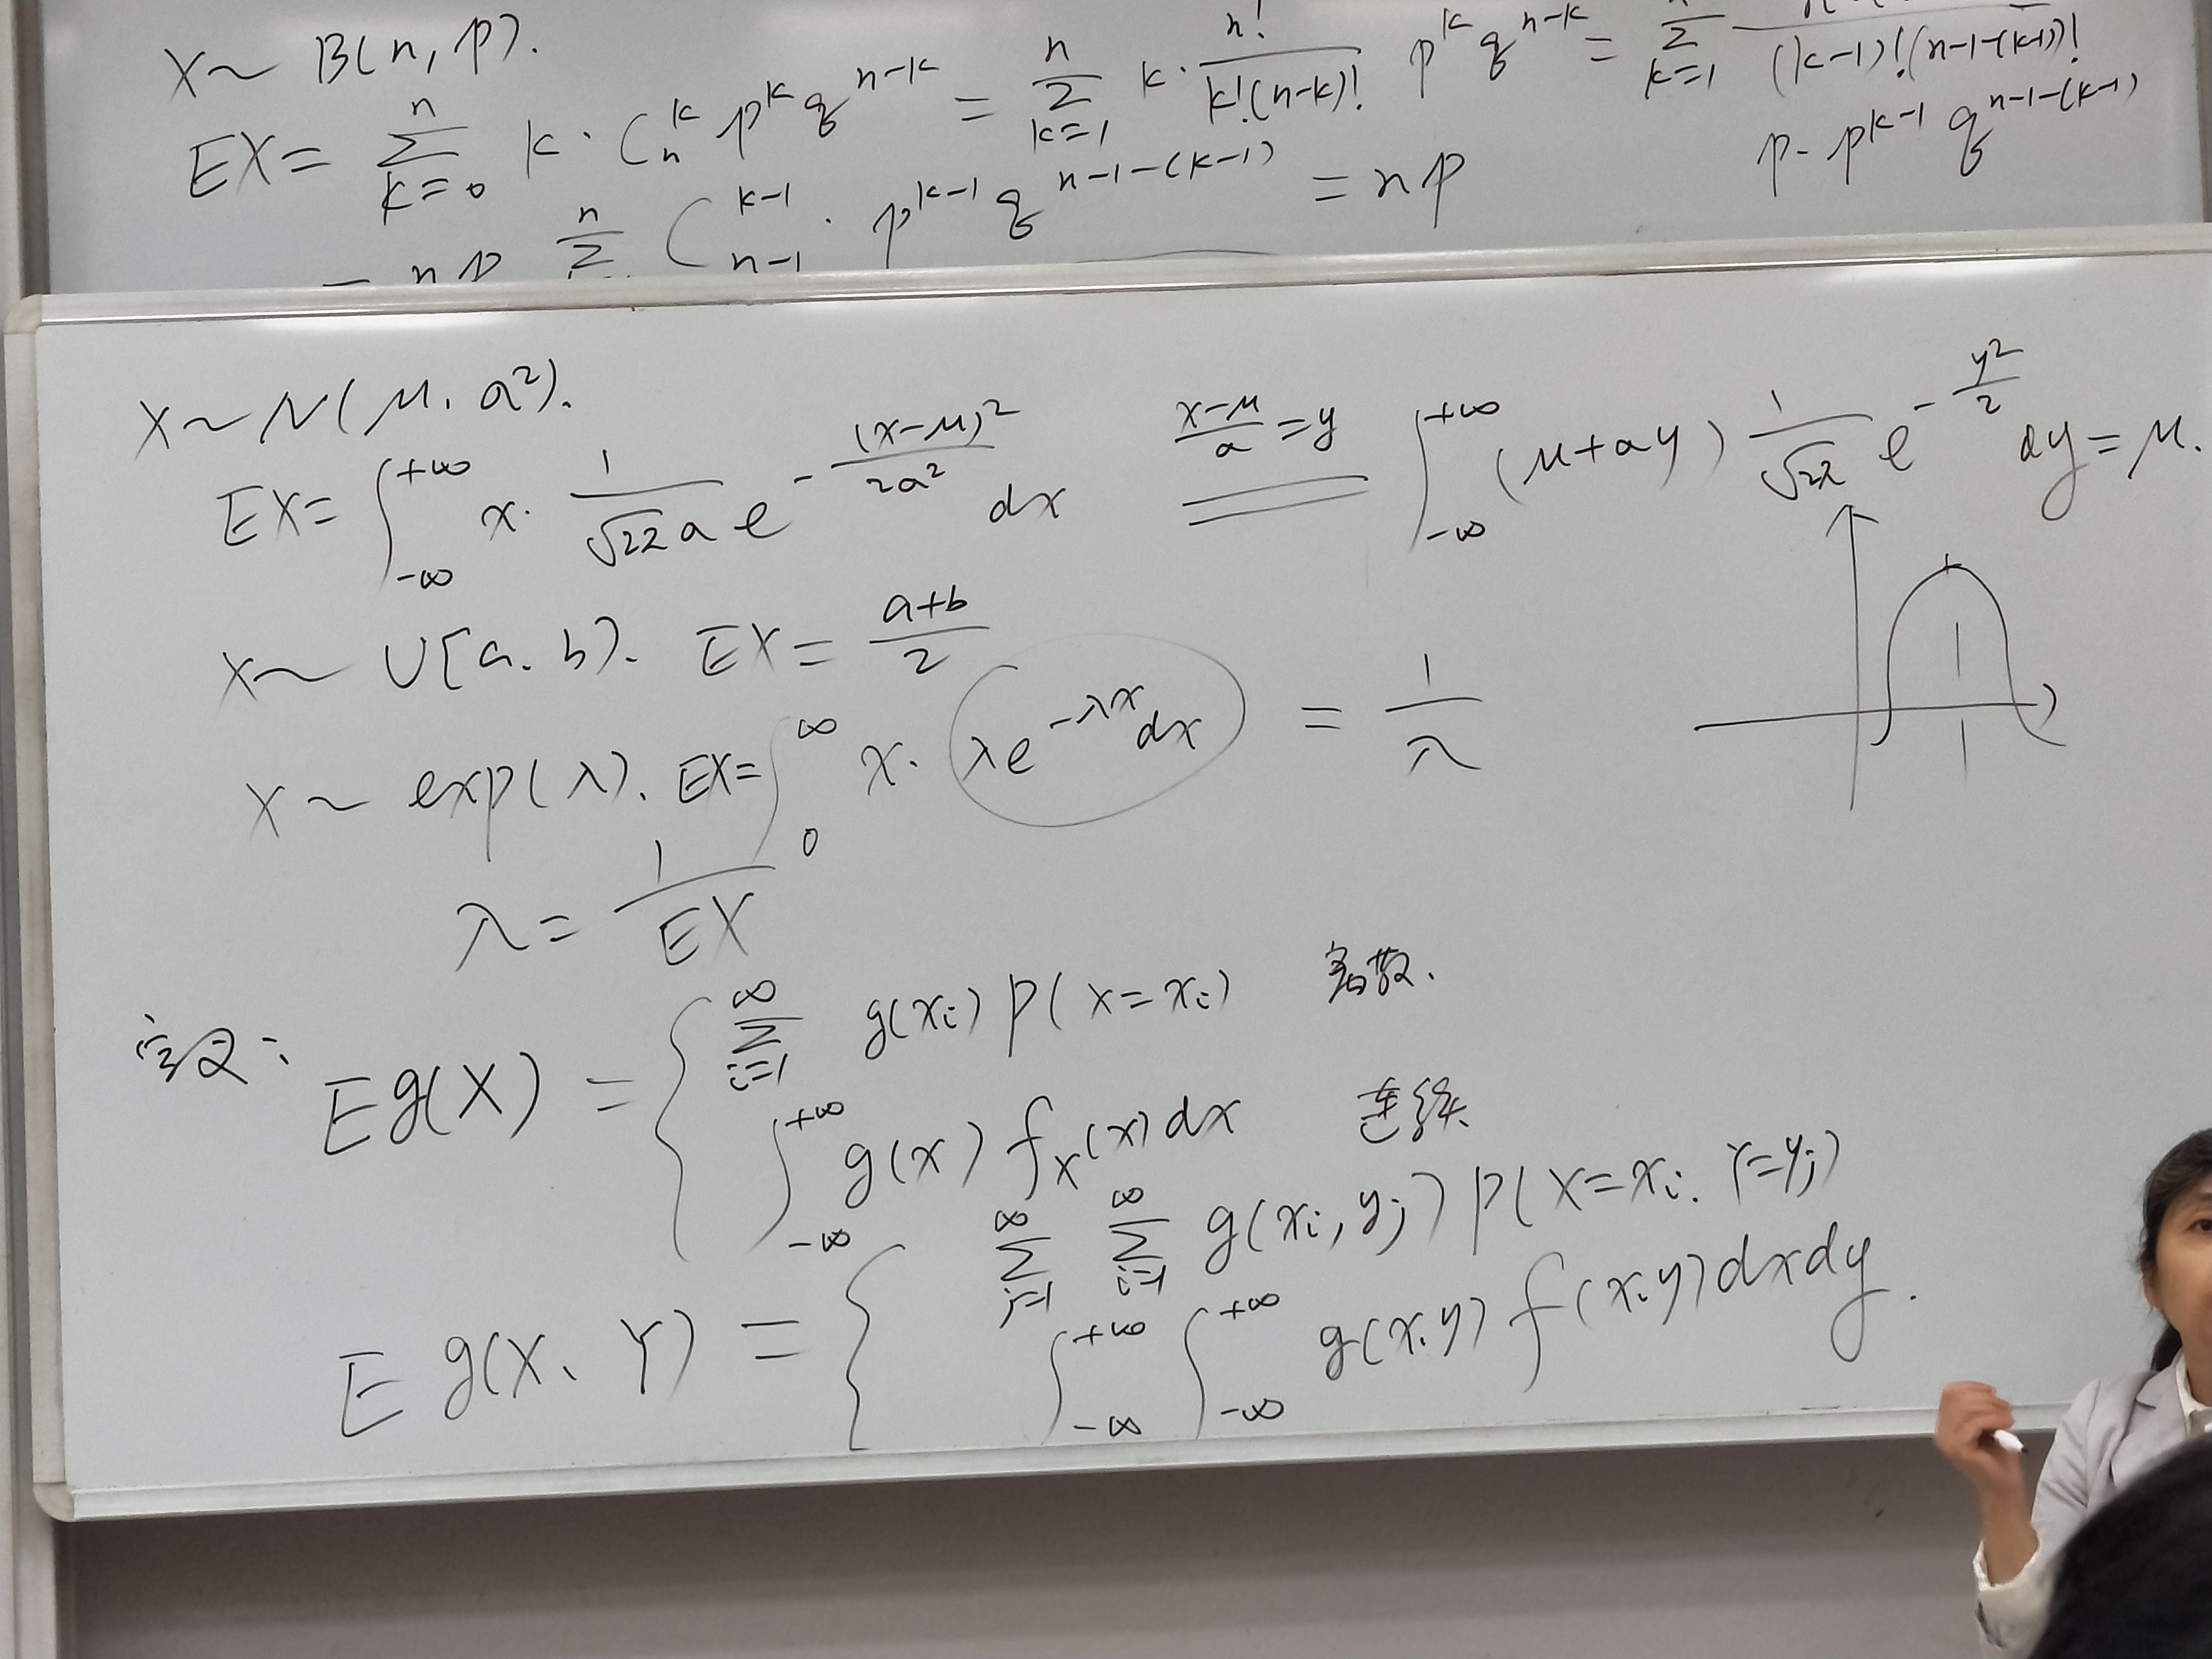 X ~ B(n, p).
EX = \sum_{k=0}^{n} k · C_n^k p^k q^{n-k} = \sum_{k=1}^{n} k · \frac{n!}{k!(n-k)!} p^k q^{n-k} = \sum_{k=1}^{n} \frac{}{(k-1)!(n-1-(k-1))!}
p · p^{k-1} q^{n-1-(k-1)}
= np \sum^{n} C_{n-1}^{k-1} · p^{k-1} q^{n-1-(k-1)} = np
X ~ N(μ, a²).
EX = \int_{-∞}^{+∞} x · \frac{1}{\sqrt{2π}a} e^{-\frac{(x-μ)^2}{2a^2}} dx \overset{\frac{x-μ}{a}=y}{=} \int_{-∞}^{+∞} (μ+ay) \frac{1}{\sqrt{2π}} e^{-\frac{y^2}{2}} dy = μ.
X ~ U[a, b). EX = \frac{a+b}{2}
X ~ exp(λ). EX = \int_0^∞ x · λe^{-λx} dx = \frac{1}{λ}
λ = \frac{1}{EX}
定义: Eg(X) = { \sum_{i=1}^{∞} g(x_i) P(X=x_i) 离散.
\int_{-∞}^{+∞} g(x) f_X(x) dx 连续
E g(X, Y) = { \sum_{j=1}^{∞} \sum_{i=1}^{∞} g(x_i, y_j) P(X=x_i, Y=y_j)
\int_{-∞}^{+∞} \int_{-∞}^{+∞} g(x,y) f(x,y) dxdy.